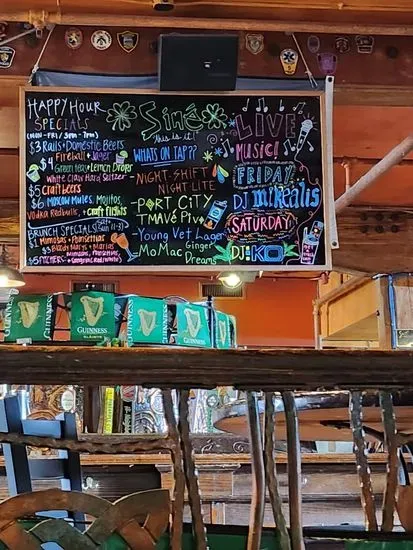 HAPPY HOUR
SPECIALS
(MON-FRI / 3PM-7PM)
$3 Rails + Domestic Beers
Fireball + Jager
$4 Green Tea + Lemon Drops
White Claw Hard Seltzer
$5 Craft beers
$6 Moscow Mules, Mojitos,
Vodka Redbulls, + Craft flights
BRUNCH SPECIALS (Sat + Sun 11-3)
$1 Mimosas + Poinsettias
$3 Bloody Marys + Marias
$5 PITCHERS
Siné
This is it!
WHATS ON TAP??
NIGHT-SHIFT
NIGHT LITE
PORT CITY
TMAVÉ PIVO
Young Vet Lager
MoMac Ginger
Dreams
LIVE
Music!
FRIDAY
DJ mrRealis
SATURDAY
DJ: IKO
GUINNESS
GUINNESS
GUINNESS
GUINNESS